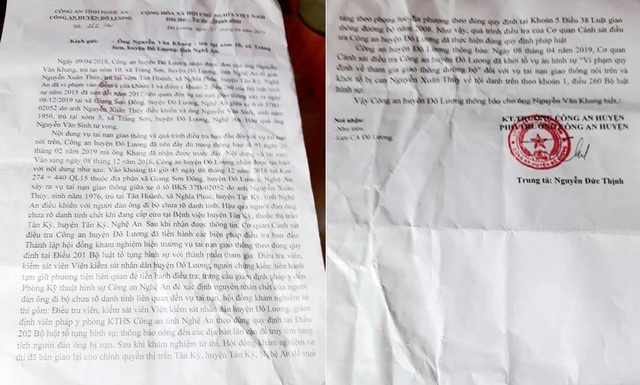 CÔNG AN TỈNH NGHỆ AN
CÔNG AN HUYỆN ĐÔ LƯƠNG
CỘNG HÒA XÃ HỘI CHỦ NGHĨA VIỆT NAM
Kính gửi: - Ông Nguyễn Văn Khang, trú tại xóm 10, xã Tràng
Sơn, huyện Đô Lương, tỉnh Nghệ An.
Ngày 09/04/2018, Công an huyện Đô Lương nhận được đơn của ông Nguyễn
Văn Khang, trú tại xóm 10, xã Tràng Sơn, huyện Đô Lương,
Xuân Thủy, trú tại xóm Tân Hoành, xã Nghĩa Phúc, huyện Tân Kỳ, Nghệ
An đã vi phạm vào điểm a của khoản 1 và điểm c khoản 2 điều 260 Bộ luật hình sự
năm 2015 đã sửa đổi năm 2017 liên quan đến vụ tai nạn giao thông xảy ra ngày
08/12/2019 tại xã Giang Sơn Đông, huyện Đô Lương, Nghệ An giữa xe ô tô 37B-
02052 do anh Nguyễn Xuân Thủy điều khiển và ông Nguyễn Văn Sinh, sinh năm
1950, trú tại xóm 5, xã Tràng Sơn, huyện Đô Lương, Nghệ An. Hậu quả ông
Nguyễn Văn Sinh tử vong.
Nội dung vụ tai nạn giao thông và quá trình điều tra ban đầu đối với vụ tai nạn
nói trên, Công an huyện Đô Lương đã nêu đầy đủ trong thông báo số 91 ngày 20
tháng 02 năm 2019 mà ông Khang đã nhận được trước đây. Nội dung vụ tai nạn:
Vào sáng ngày 08 tháng 12 năm 2018, Công an huyện Đô Lương nhận được tin báo
với nội dung như sau: Vào khoảng 04 giờ 45 ngày 08 tháng 12 năm 2018 tại Km
274 + 440 QL15 thuộc địa phận xã Giang Sơn Đông, huyện Đô Lương, Nghệ An,
xảy ra vụ tai nạn giao thông giữa xe ô tô BKS 37B-02052 do anh Nguyễn Xuân
Thủy, sinh năm 1976, trú tại Tân Hoành, xã Nghĩa Phúc, huyện Tân Kỳ, tỉnh Nghệ
An điều khiển với người đàn ông đi bộ chưa rõ danh tính. Hậu quả người đàn ông
chưa rõ danh tính chết khi đang cấp cứu tại Bệnh viện huyện Tân Kỳ, thuộc thị trấn
Tân Kỳ, huyện Tân Kỳ, Nghệ An. Sau khi nhận được thông tin. Cơ quan Cảnh sát
điều tra Công an huyện Đô Lương đã tiến hành các biện pháp điều tra ban đầu:
Thành lập hội đồng khám nghiệm hiện trường vụ tai nạn giao thông theo đúng quy
định tại Điều 201 Bộ luật tố tụng hình sự với thành phần tham gia: Điều tra viên,
kiểm sát viên Viện kiểm sát nhân dân huyện Đô Lương, người chứng kiến; tiến hành
tạm giữ phương tiện liên quan để tiến hành điều tra; trưng cầu giám định pháp y đến
Phòng Kỹ thuật hình sự Công an Nghệ An để xác định nguyên nhân chết của người
đàn ông đi bộ chưa rõ danh tính liên quan đến vụ tai nạn, hội đồng khám nghiệm tử
thi gồm: Điều tra viên, kiểm sát viên Viện kiểm sát nhân dân huyện Đô Lương, giám
định viên pháp y phòng KTHS Công an tỉnh Nghệ An theo đúng quy định tại Điều
202 Bộ luật tố tụng hình sự; thông báo nóng đến các địa bàn lân cận để truy tìm tung
tích người đàn ông bị nạn. Sau khi khám nghiệm tử thi, Hội đồng khám nghiệm tử
thi đã bàn giao lại cho chính quyền thị trấn Tân Kỳ, huyện Tân Kỳ, Nghệ An để mai
táng theo phong tục địa phương theo đúng quy định tại Khoản 5 Điều 38 Luật giao
thông đường bộ năm 2008. Như vậy, quá trình điều tra của Cơ quan Cảnh sát điều
tra Công an huyện Đô Lương đã thực hiện đúng quy định pháp luật
Công an huyện Đô Lương thông báo. Ngày 08 tháng 04 năm 2019, Cơ quan
Cảnh sát điều tra Công an huyện Đô Lương đã khởi tố vụ án hình sự "Vi phạm quy
định về tham gia giao thông đường bộ" đối với vụ tai nạn giao thông nói trên và
khởi tố bị can Nguyễn Xuân Thủy về tội danh trên theo khoản 1, điều 260 Bộ luật
hình sự.
Vậy Công an huyện Đô Lương thông báo cho ông Nguyễn Văn Khang biết./.
Nơi nhận:
- Như trên;
- Lưu CA Đô Lương.
KT.TRƯỞNG CÔNG AN HUYỆN
PHÓ TRƯỞNG CÔNG AN HUYỆN
Trung tá: Nguyễn Đức Thịnh